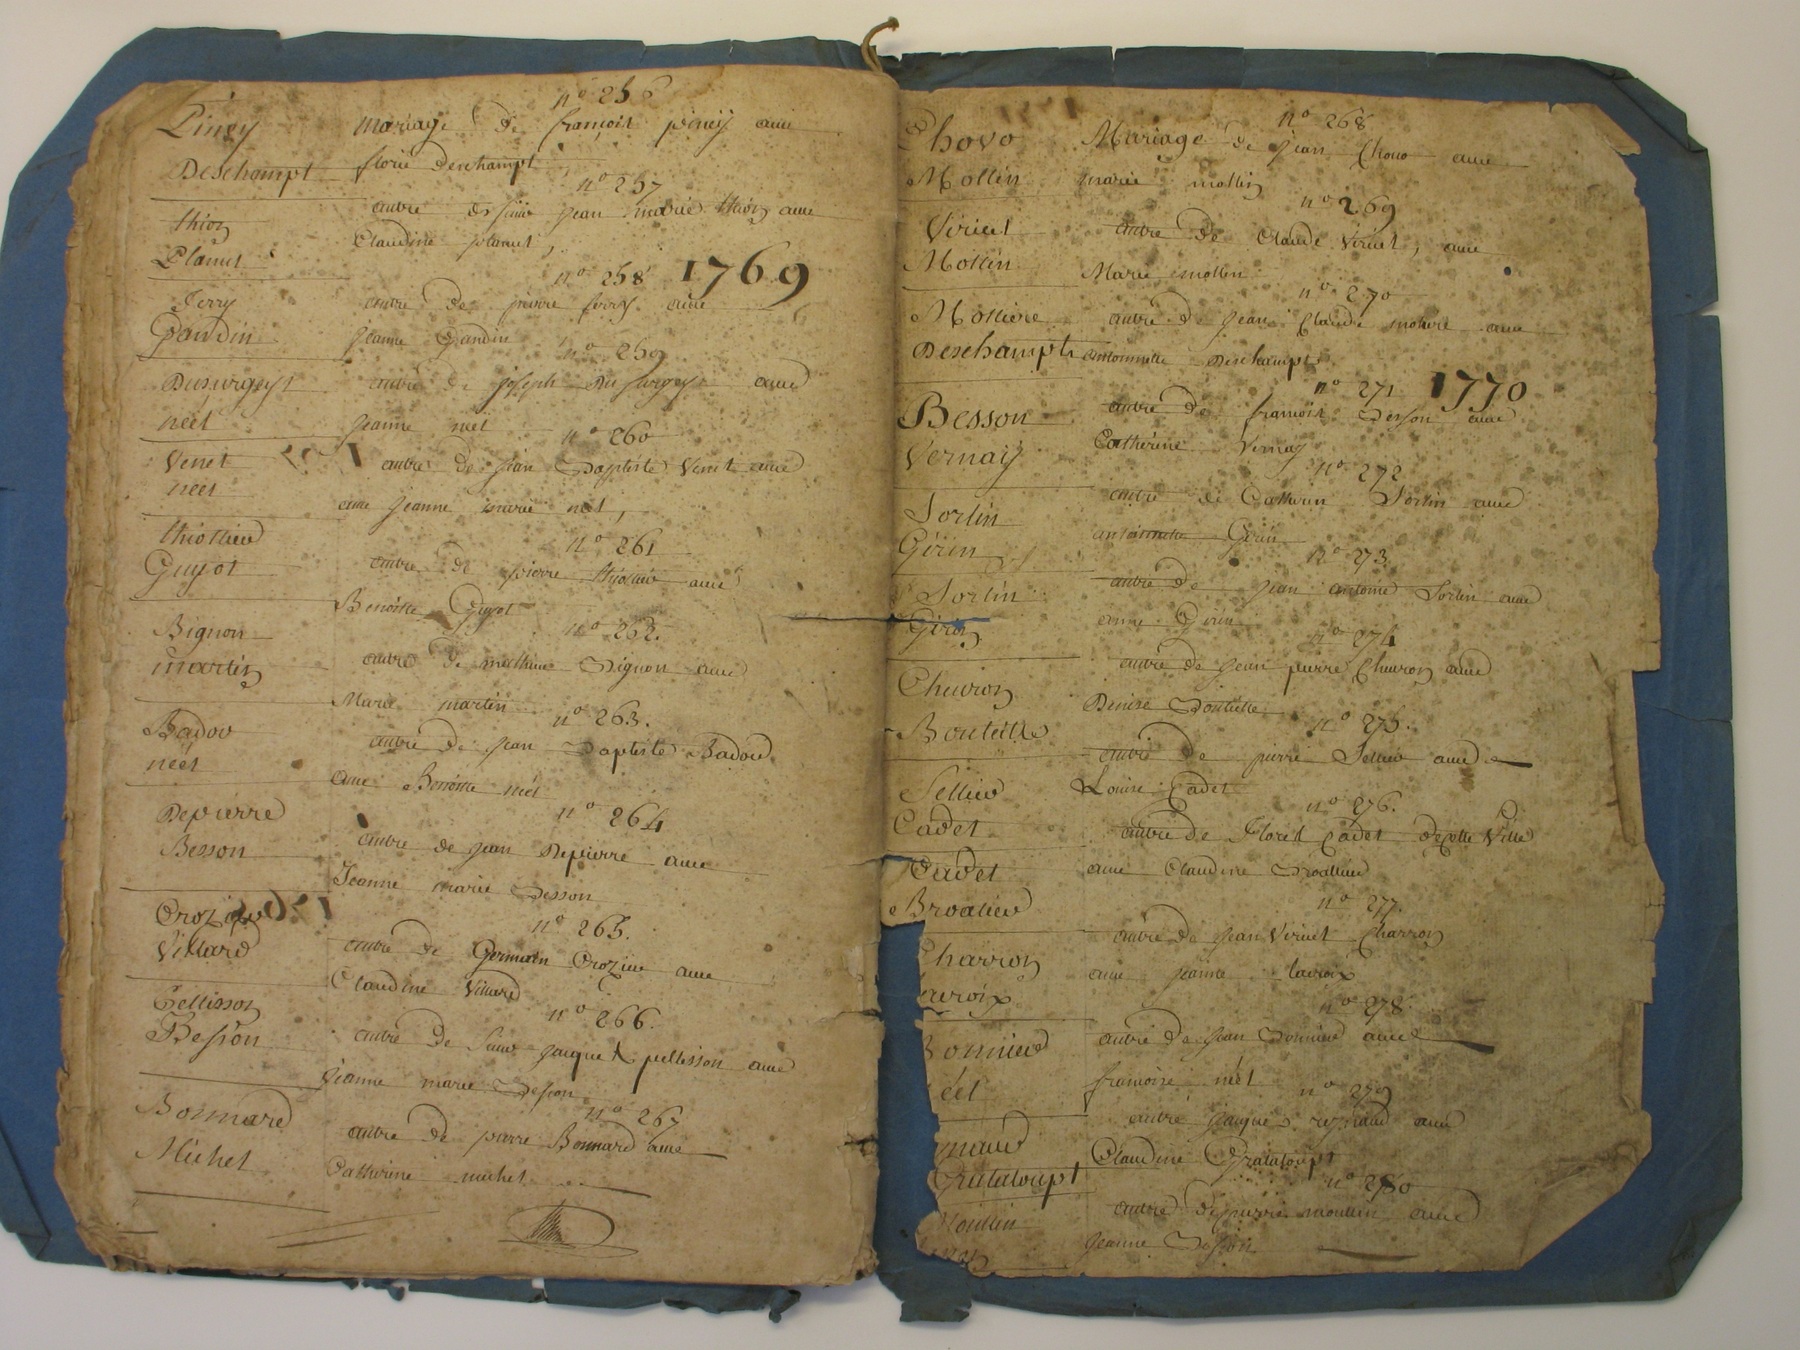 n° 256
Piney mariage de françois piney avec
Deschampt florie deschampt
n° 257
thion autre de jean marie thion avec
Planut Claudine planut,
n° 258 1769
ferry autre de pierre ferry avec
Gaudin jeanne gaudin
n° 259
Dusurgeyt autre de joseph Dusurgeyt avec
néel jeanne néel
n° 260
Venet autre de jean Baptiste Venet avec
néel jeanne marie néel,
n° 261
thiollier autre de pierre thiollier avec
Guyot Benoitte Guyot
n° 262.
Bignon autre de mathieu Bignon avec
martin Marie martin
n° 263.
Badou autre de jean Baptiste Badou
néel avec Benoitte néel
n° 264
Depierre autre de jean Depierre avec
Besson Jeanne marie Besson
n° 265.
Crozier autre de Germain Crozier avec
Villard Claudine Villard
n° 266.
Pellisson autre de jaques pellisson avec
Besson jeanne marie Besson
n° 267
Bonnard autre de pierre Bonnard avec
Michel Catherine michel
n° 268
Chovo Mariage de jean Chovo avec
Mollin marie mollin
n° 269
Viriet autre de Claude Viriet, avec
Mollin Marie mollin
n° 270
Moliere autre de jean Claude moliere avec
Deschampt antoinette Deschampt
n° 271 1770
Besson autre de françois Besson avec
Vernay Catherine Vernay
n° 272
Sorlin autre de Catherin Sorlin avec
Gérin antoinette Gérin
n° 273.
Sorlin autre de jean antoine Sorlin avec
Gérin Gérin
n° 274
Chuiron autre de jean pierre Chuiron avec
Bouteille Denise Bouteille
n° 275.
Sellier autre de pierre Sellier avec
Cadet Louise Cadet
n° 276.
Cadet autre de Floris Cadet de Cette Ville
Broalier avec Claudine Broallier
n° 277.
Charron autre de jean Viriet Charron
lacroix avec jeanne lacroix
n° 278.
Bonnier autre de jean Bonnier avec
éel françoise néel
n° 279
ynaud autre jaques reynaud avec
Grataloupt Claudine Grataloupt
n° 280
Moulin autre de pierre moulin avec
jeanne Besson